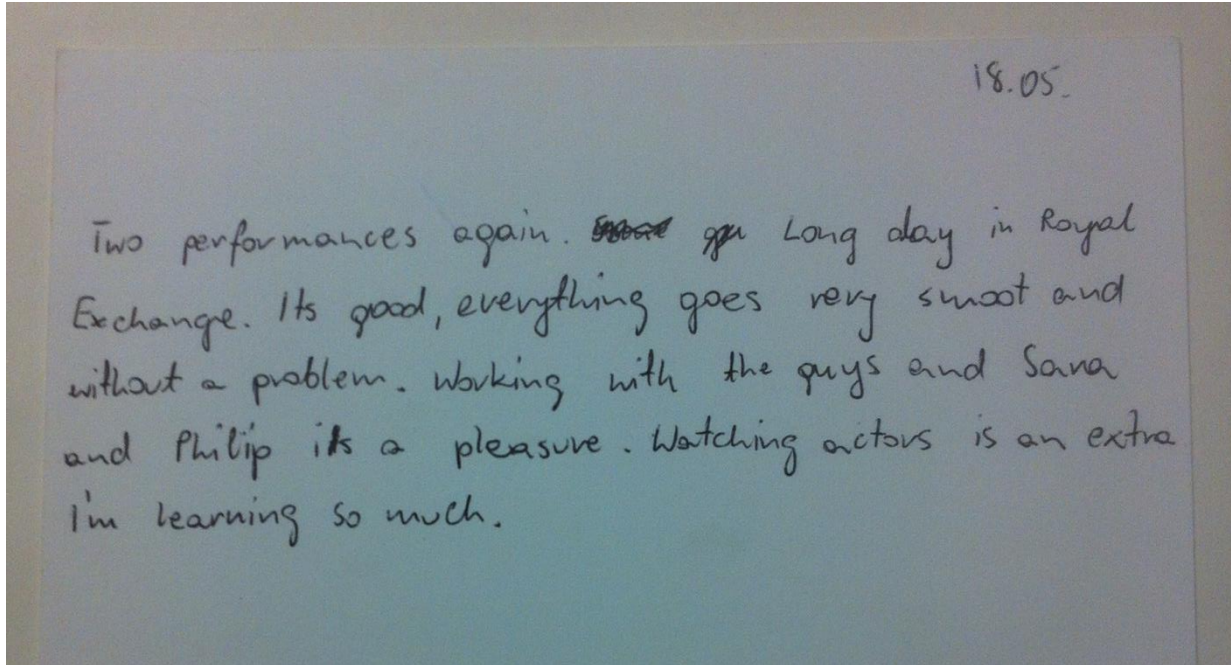 18.05.
Two performances again. Long day in Royal
Exchange. Its good, everything goes very smoot and
without a problem. Working with the guys and Sara
and Philip its a pleasure. Watching actors is an extra
I'm learning so much.